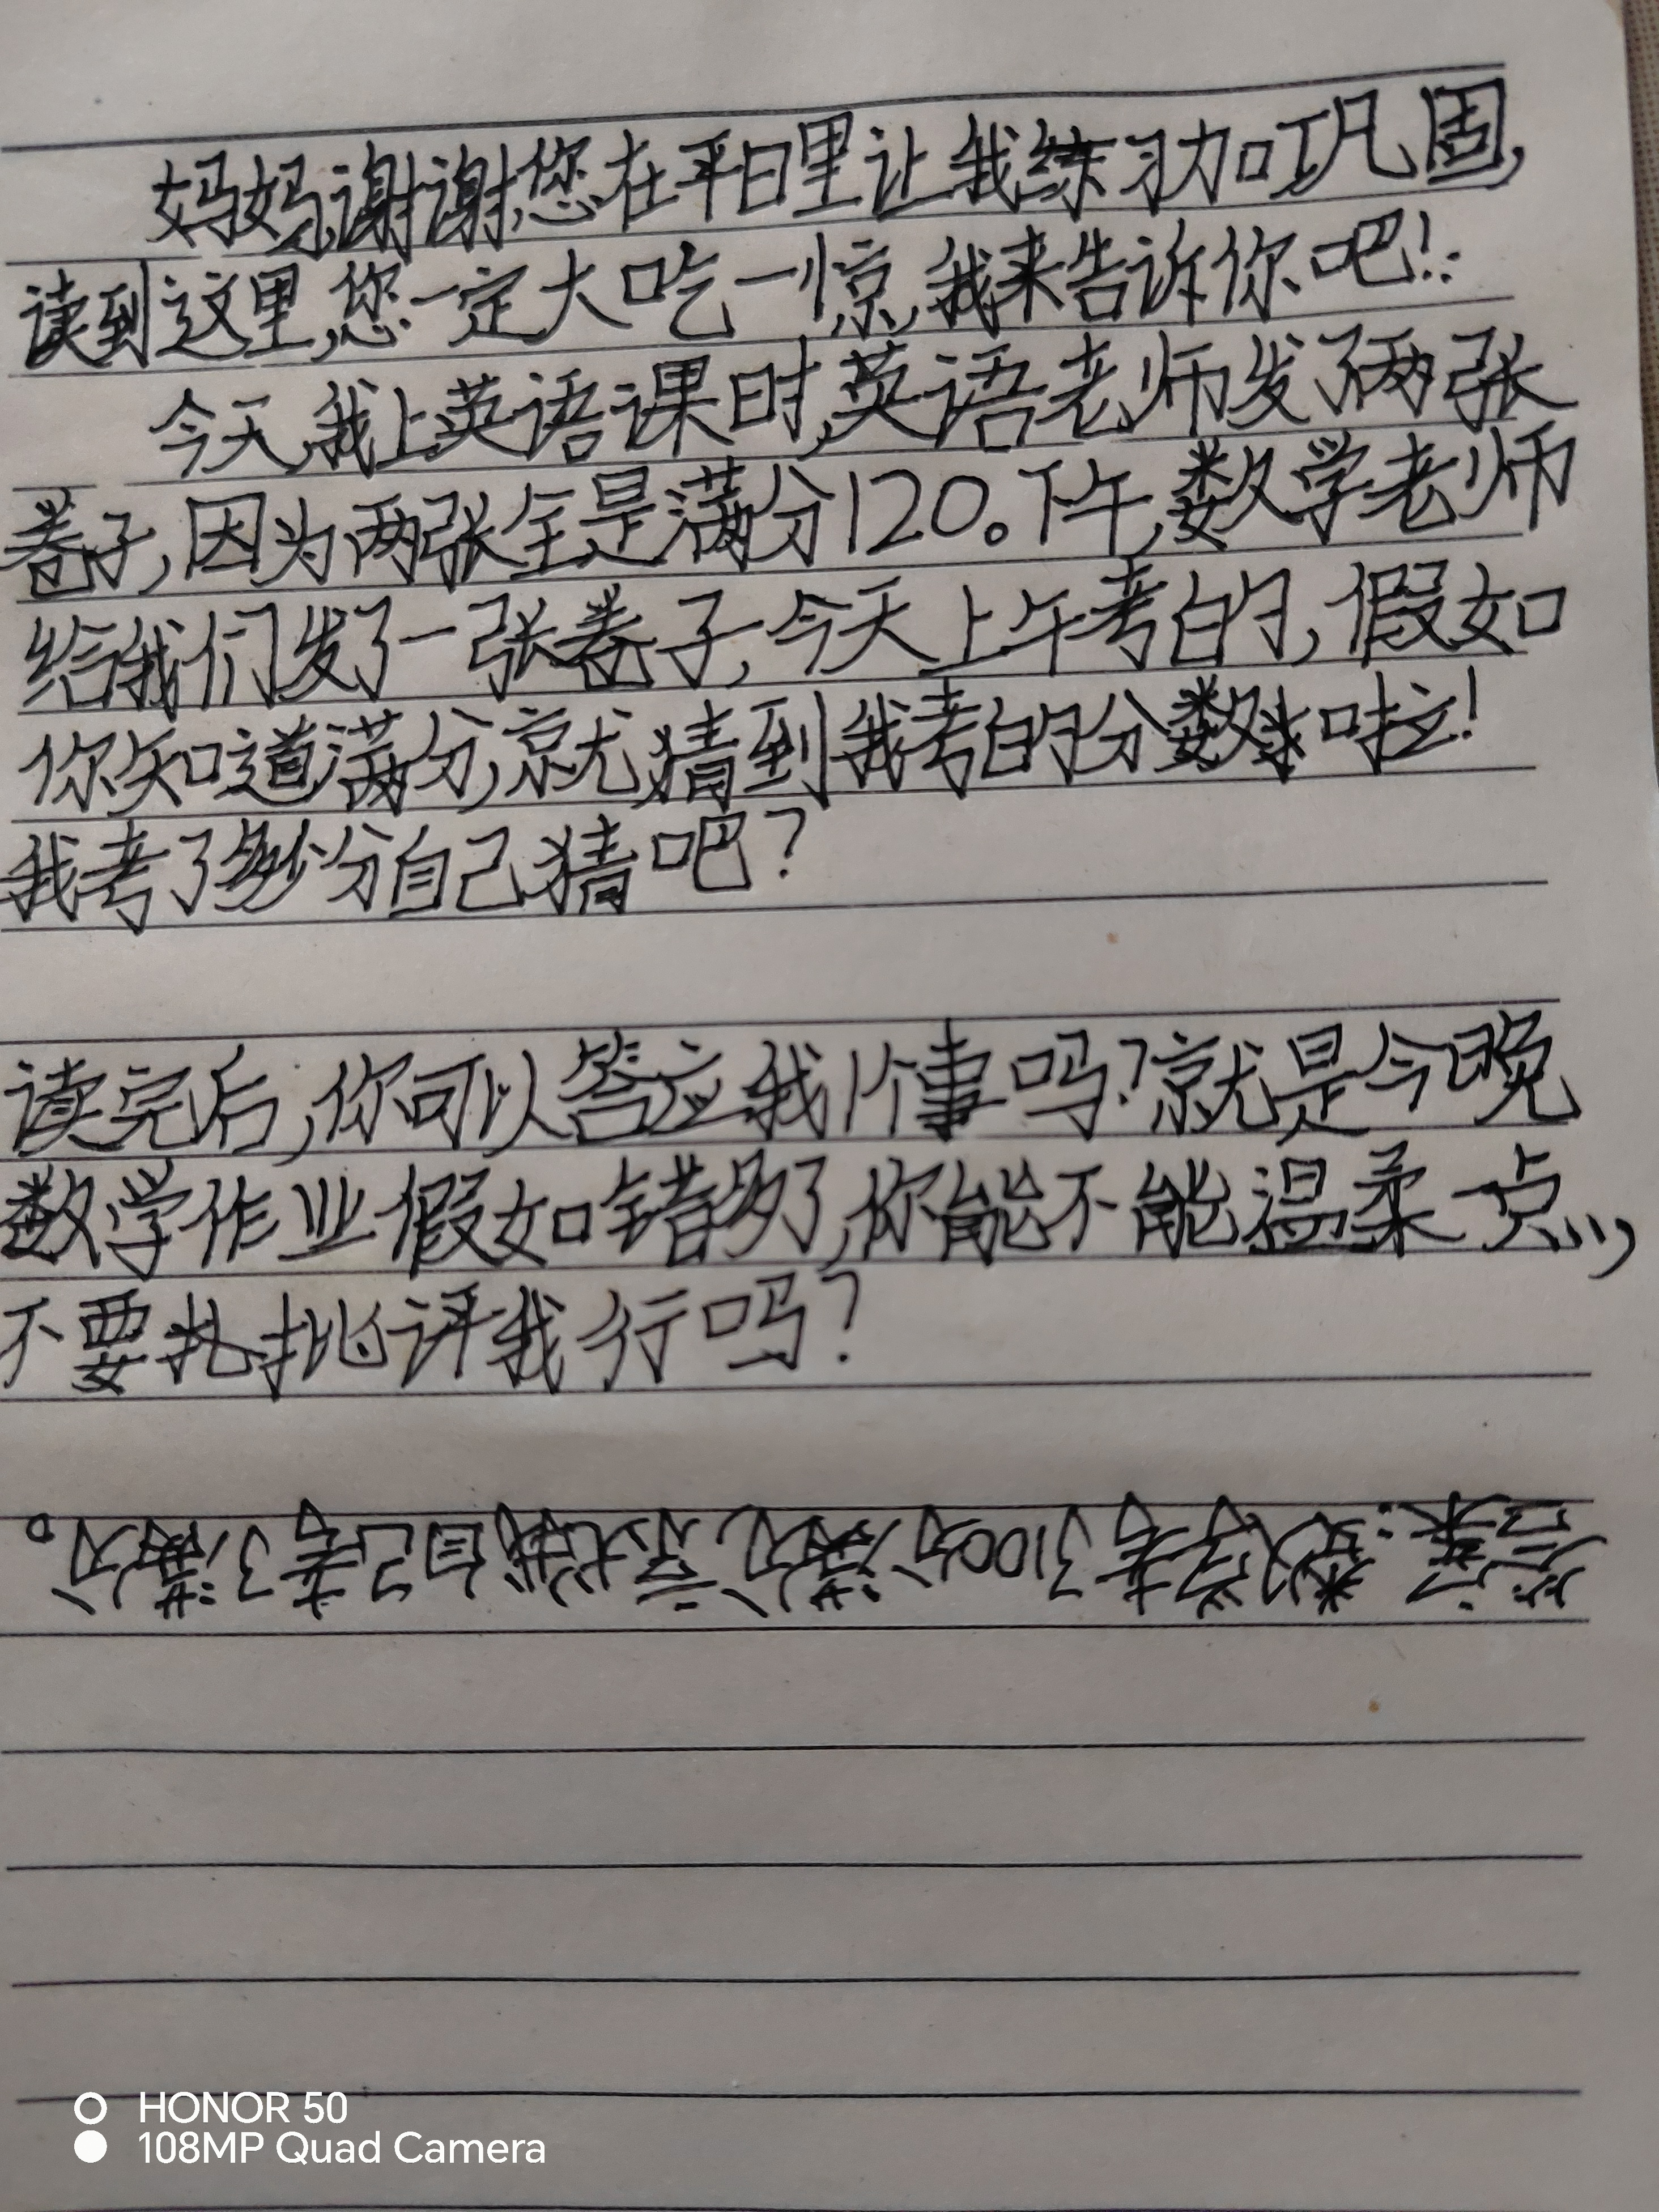 妈妈,谢谢您在平日里让我练习加巩固,
读到这里,您一定大吃一惊,我来告诉你吧!:
今天,我上英语课时,英语老师发了两张
卷子,因为两张全是满分120。下午,数学老师
给我们发了一张卷子,今天上午考的,假如
你知道满分,就猜到我考的分数啦!
我考了多少分自己猜吧?
读完后,你可以答应我1个事吗?就是今晚
数学作业假如错多了,你能不能温柔一点,
不要批评我行吗?
答案:数学考了100分,满分,就我自己考了满分。
HONOR 50
108MP Quad Camera